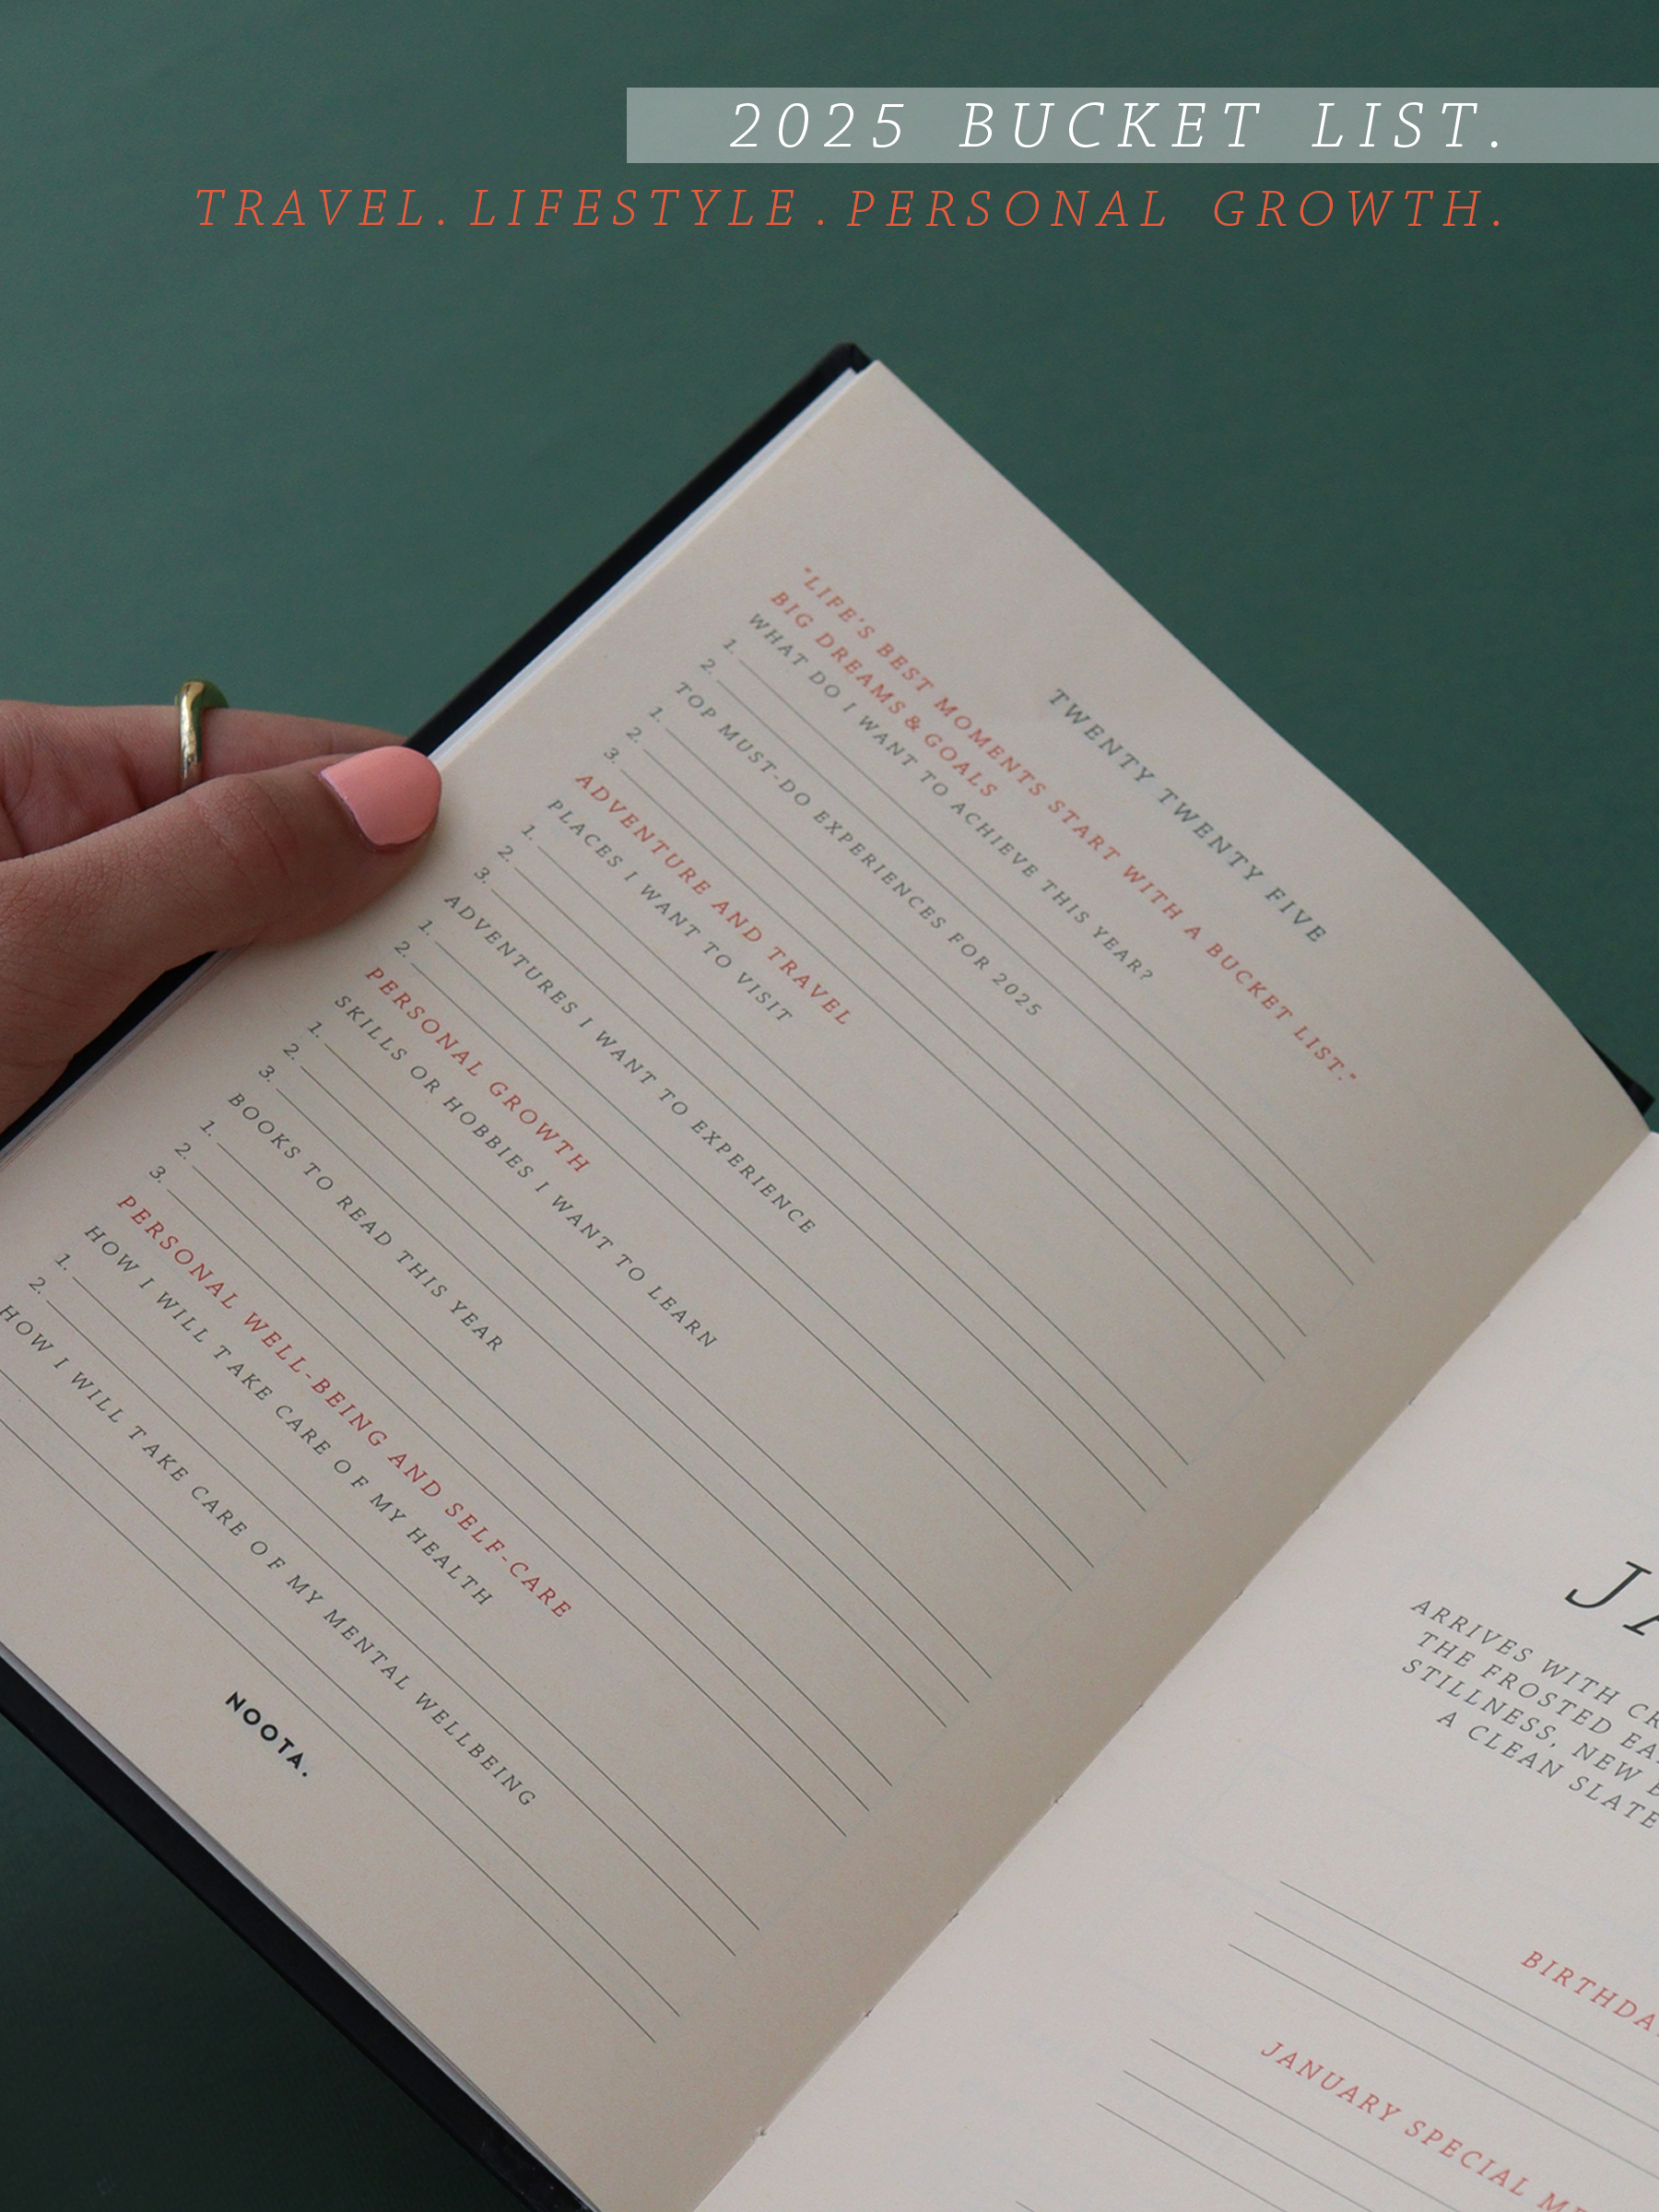 2025 BUCKET LIST.
TRAVEL. LIFESTYLE. PERSONAL GROWTH.
TWENTY TWENTY FIVE
"LIFE'S BEST MOMENTS START WITH A BUCKET LIST."
BIG DREAMS & GOALS
WHAT DO I WANT TO ACHIEVE THIS YEAR?
1.
2.
TOP MUST-DO EXPERIENCES FOR 2025
1.
2.
3.
ADVENTURE AND TRAVEL
PLACES I WANT TO VISIT
1.
2.
3.
ADVENTURES I WANT TO EXPERIENCE
1.
2.
PERSONAL GROWTH
SKILLS OR HOBBIES I WANT TO LEARN
1.
2.
3.
BOOKS TO READ THIS YEAR
1.
2.
3.
PERSONAL WELL-BEING AND SELF-CARE
HOW I WILL TAKE CARE OF MY HEALTH
1.
2.
HOW I WILL TAKE CARE OF MY MENTAL WELLBEING
NOOTA.
JA
ARRIVES WITH CR
THE FROSTED EA
STILLNESS, NEW
A CLEAN SLATE
BIRTHDA
JANUARY SPECIAL